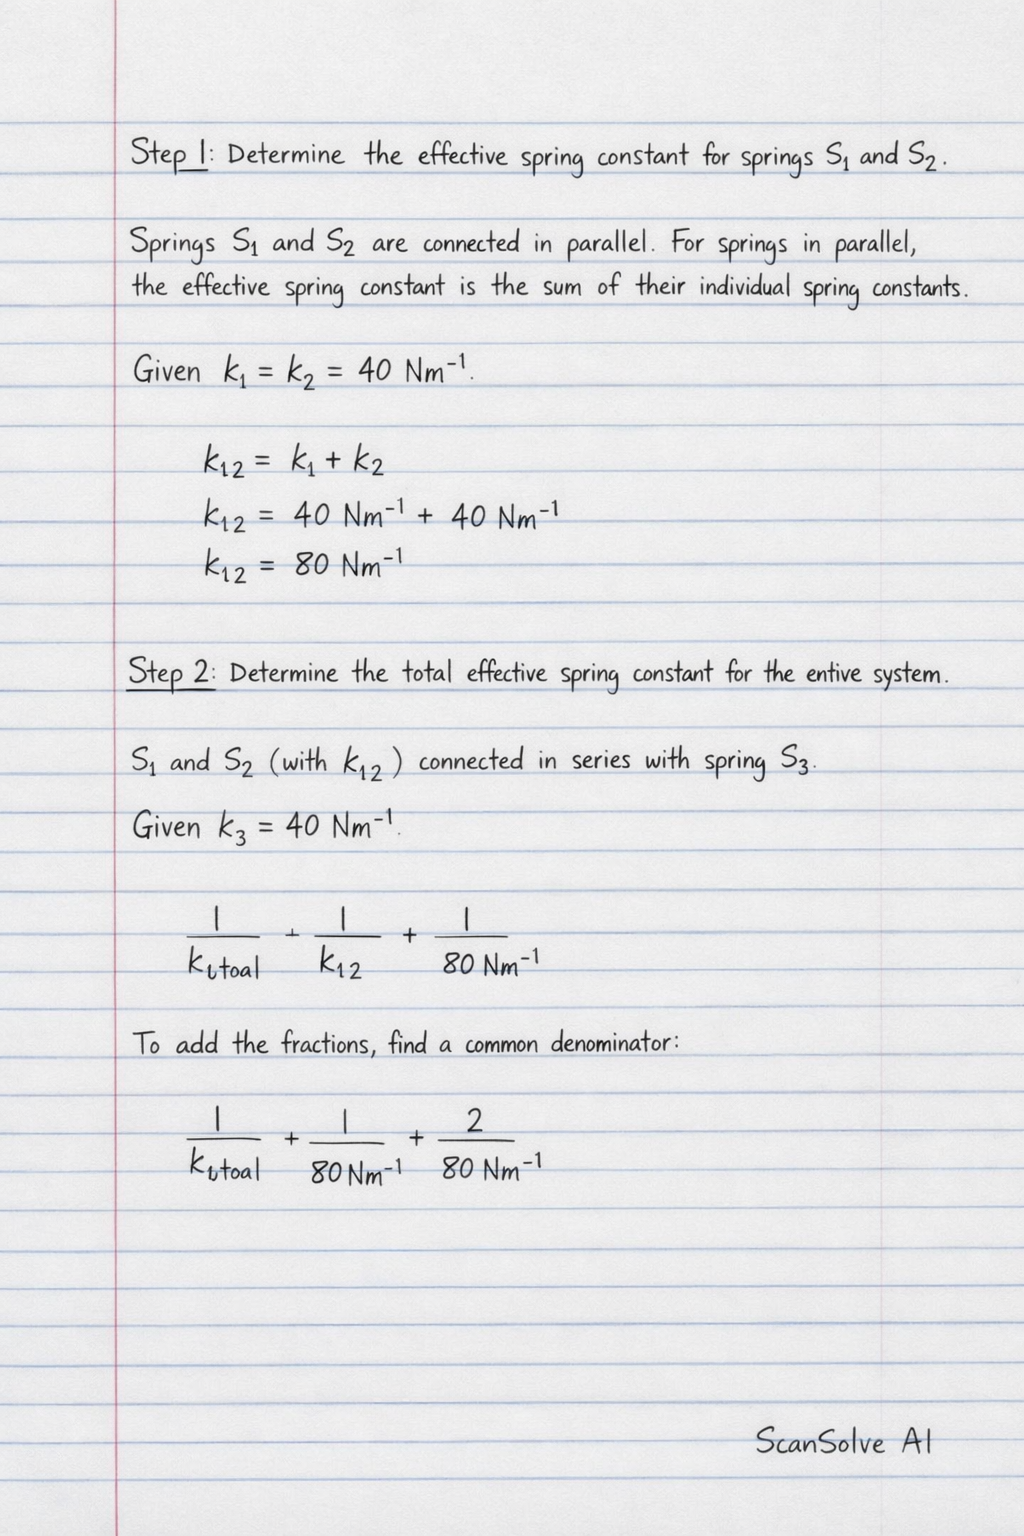 Step 1: Determine the effective spring constant for springs S₁ and S₂.
Springs S₁ and S₂ are connected in parallel. For springs in parallel,
the effective spring constant is the sum of their individual spring constants.
Given k₁ = k₂ = 40 Nm⁻¹.
k₁₂ = k₁ + k₂
k₁₂ = 40 Nm⁻¹ + 40 Nm⁻¹
k₁₂ = 80 Nm⁻¹
Step 2: Determine the total effective spring constant for the entive system.
S₁ and S₂ (with k₁₂) connected in series with spring S₃.
Given k₃ = 40 Nm⁻¹.
1 1 1
kₜtoal + k₁₂ + 80 Nm⁻¹
To add the fractions, find a common denominator:
1 1 2
kₜtoal + 80 Nm⁻¹ + 80 Nm⁻¹
ScanSolve AI